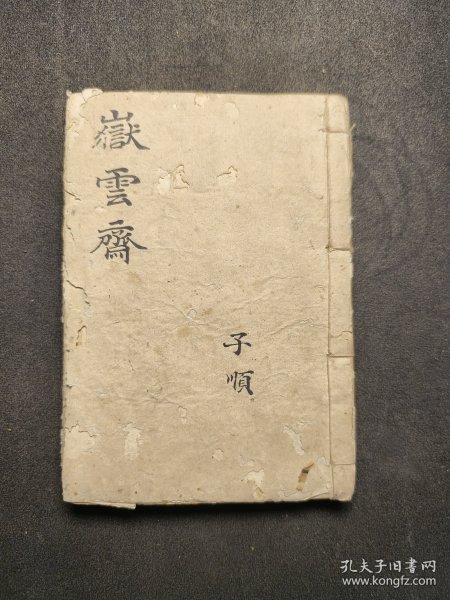 嶽雲齋
子順
孔夫子旧书网
www.kongfz.com